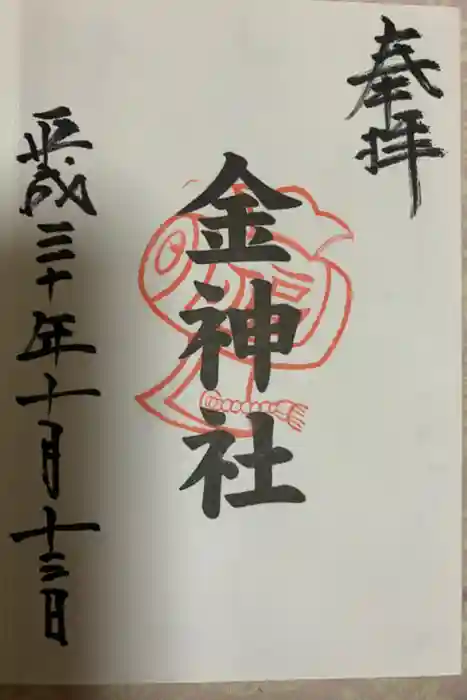 奉拝
金神社
平成三十年十月十三日